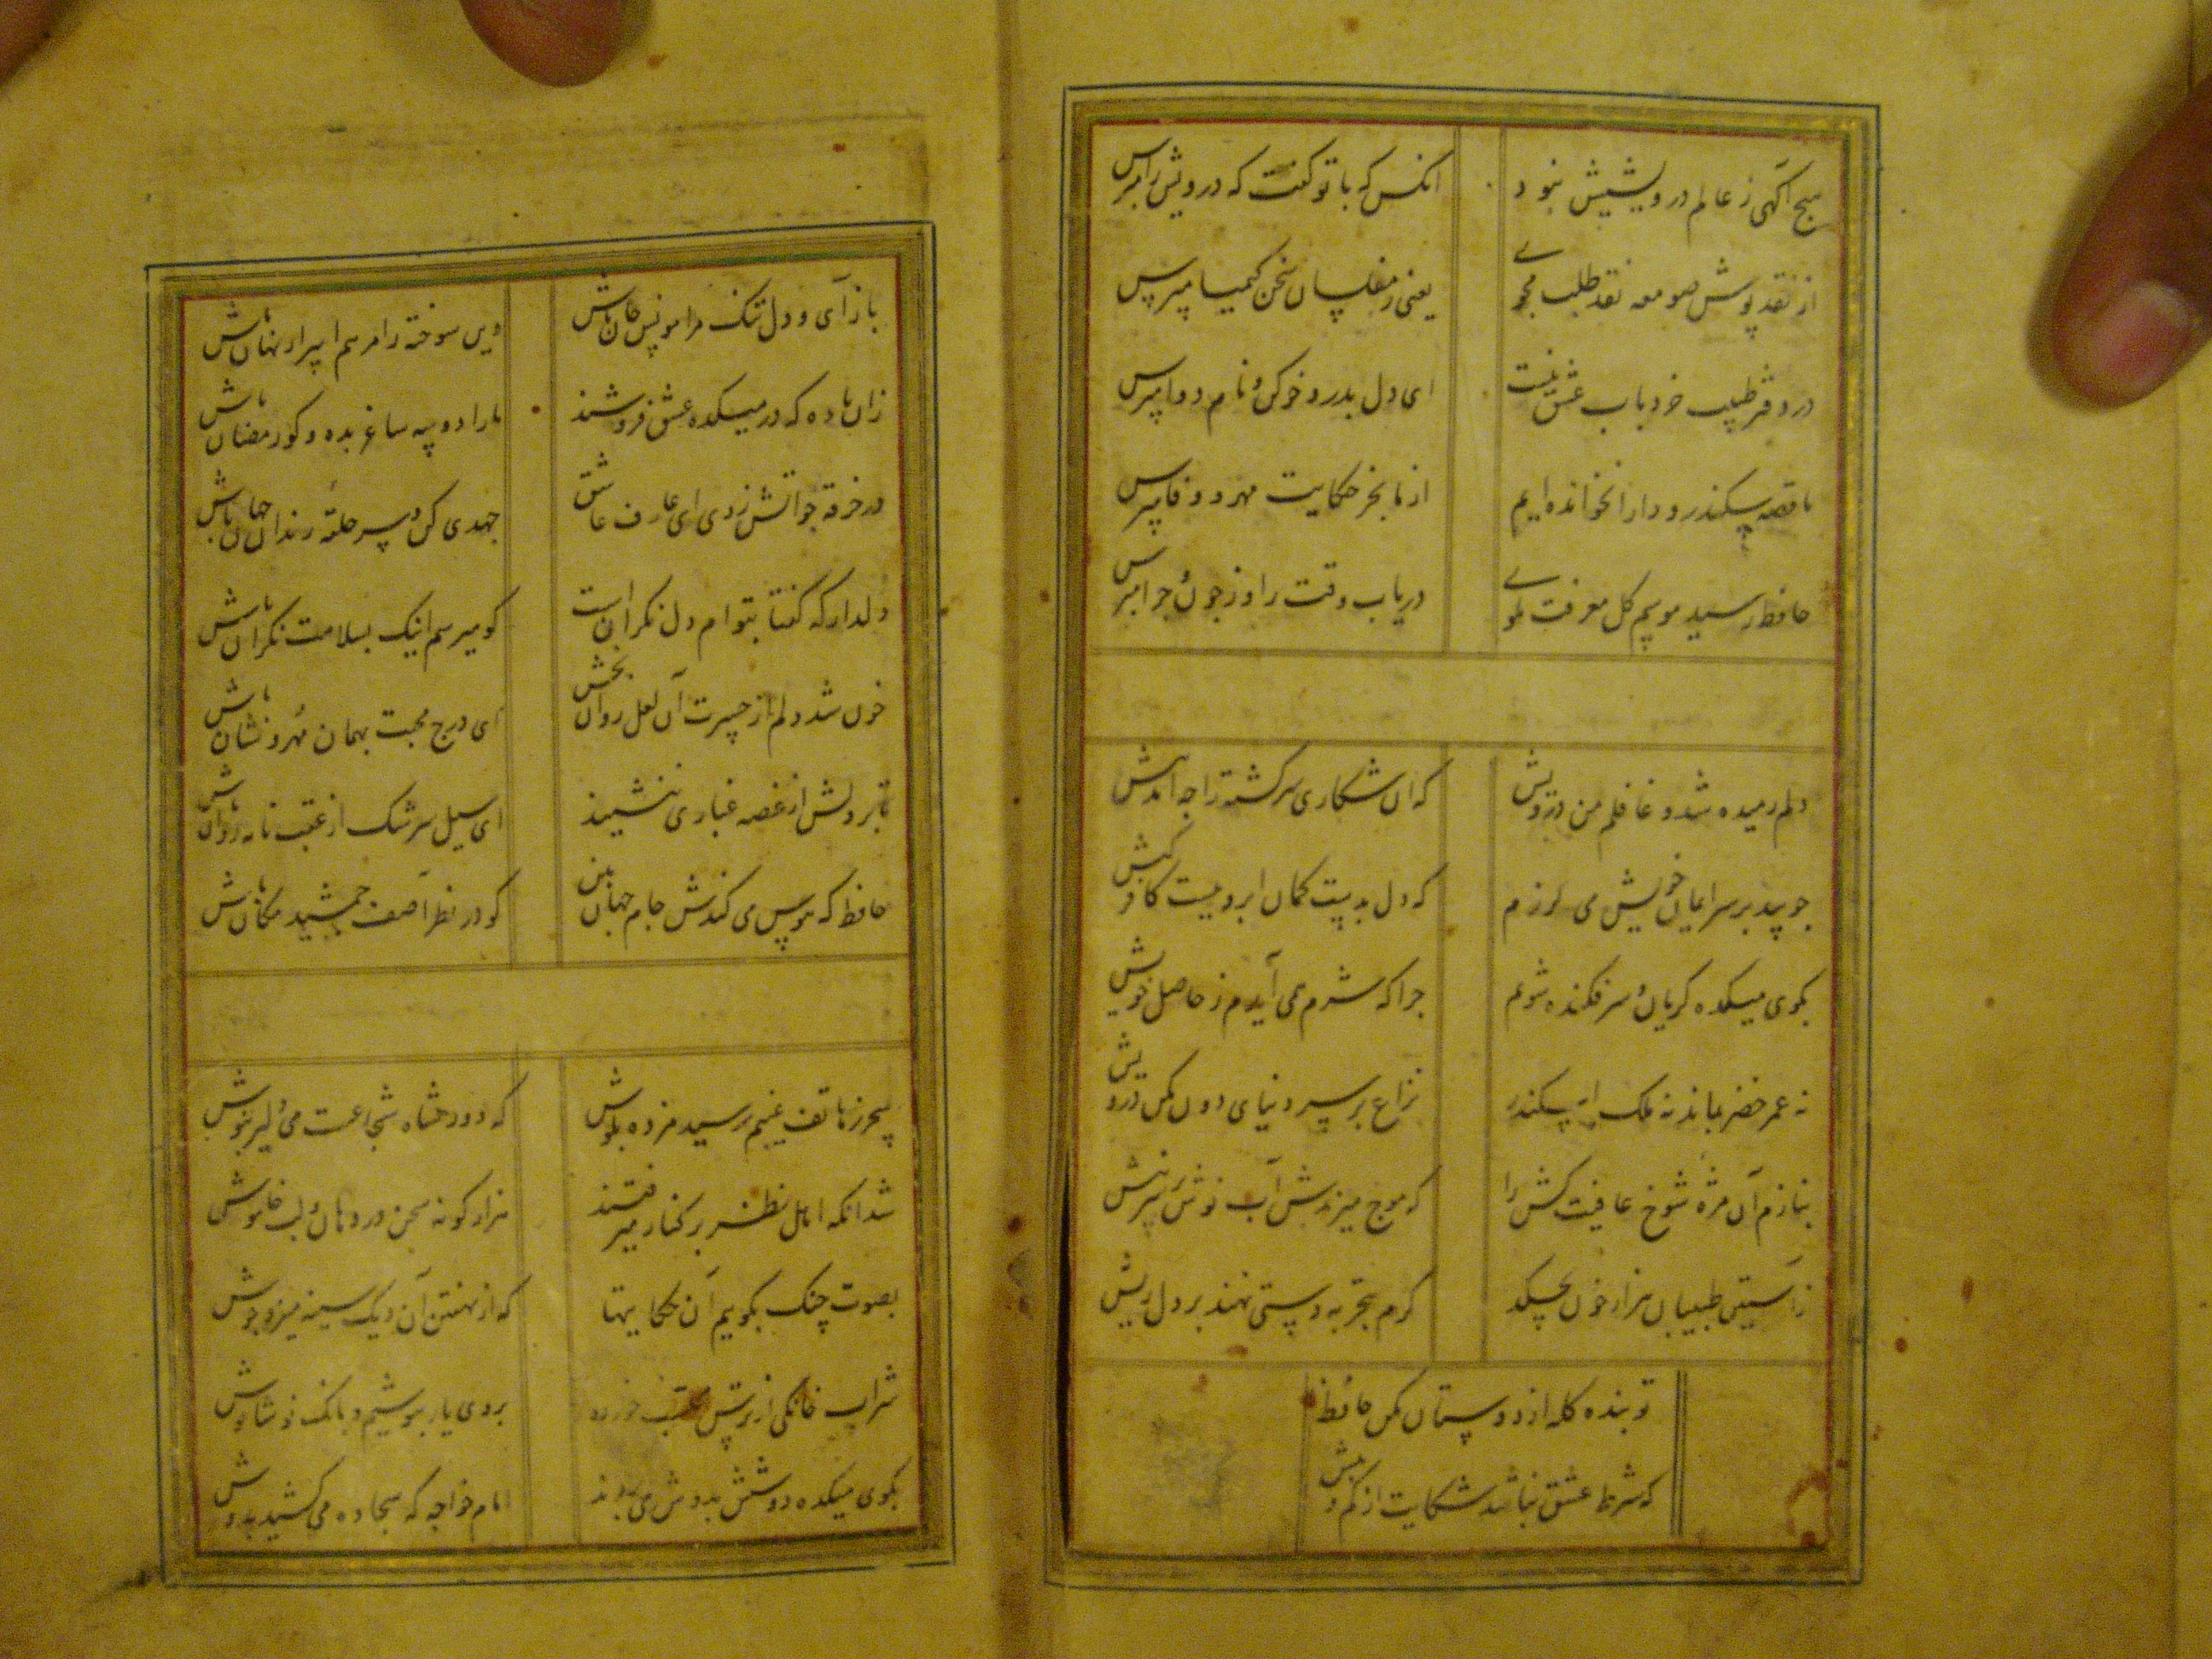 هیچ آگهی ز عالم درویشیش نبود
انکس که با تو گفت که درویش را مپرس
از نقد پوش صومعه نقد طلب مجوی
یعنی ز مفلسان سخن کیمیا مپرس
در دفتر طبیب خرد باب عشق نیست
ای دل بدرد خو کن و نام دوا مپرس
ما قصه سکندر و دارا نخوانده ایم
از ما بجز حکایت مهر و وفا مپرس
حافظ رسید موسم گل معرفت مگوی
دریاب وقت را وز چون و چرا مپرس
دلم رمیده شد و غافلم من درویش
که ان شکاری سرگشته را چه آمد پیش
چو بید بر سر ایمان خویش می لرزم
که دل بدست کمان ابروییست کافر کیش
بکوی میکده گریان و سرفکنده شوم
چرا که شرم همی آیدم ز حاصل خویش
نه عمر خضر بماند نه ملک اسکندر
نزاع بر سر دنیای دون مکن درویش
بنازم آن مژه شوخ عافیت کش را
که موج میزندش آب نوش بر سر نیش
ز آستین طبیبان هزار خون بچکد
گرم بتجربه دستی نهند بر دل ریش
تو بنده گله از دوستان مکن حافظ
که شرط عشق نباشد شکایت از کم و بیش
باز آی و دل تنک مرا مونس جان باش
وین سوخته را مرهم اسرار نهان باش
زان باده که در میکده عشق فروشند
مارا دو سه ساغر بده و کو رمضان باش
در خرقه چو آتش زدی ای عارف عاشق
جهدی کن و سر حلقه رندان جهان باش
دلدار که گفتا بتوام دل نگران است
کو میرسم اینک بسلامت نگران باش
خون شد دلم از حسرت آن لعل روان بخش
ای درج محبت بهمان مهر و نشان باش
تا بر دلش از غصه غباری ننشیند
ای سیل سرشک از عقب نامه روان باش
حافظ که هوس می کندش جام جهان بین
کو در نظر آصف جمشید مکان باش
سحر ز هاتف غیبم رسید مژده بگوش
که دور شاه شجاعست می دلیر بنوش
شد انکه اهل نظر بر کناره میرفتند
هزار گونه سخن در دهان و لب خاموش
بصوت چنک بگویم آن حکایتها
که از نهفتن آن دیک سینه میزد جوش
شراب خانگی از ترس محتسب خورده
بروی یار بنوشیم و بانک نوشانوش
بکوی میکده دوشش بدوش می بردند
امام خواجه که سجاده می کشید بدوش